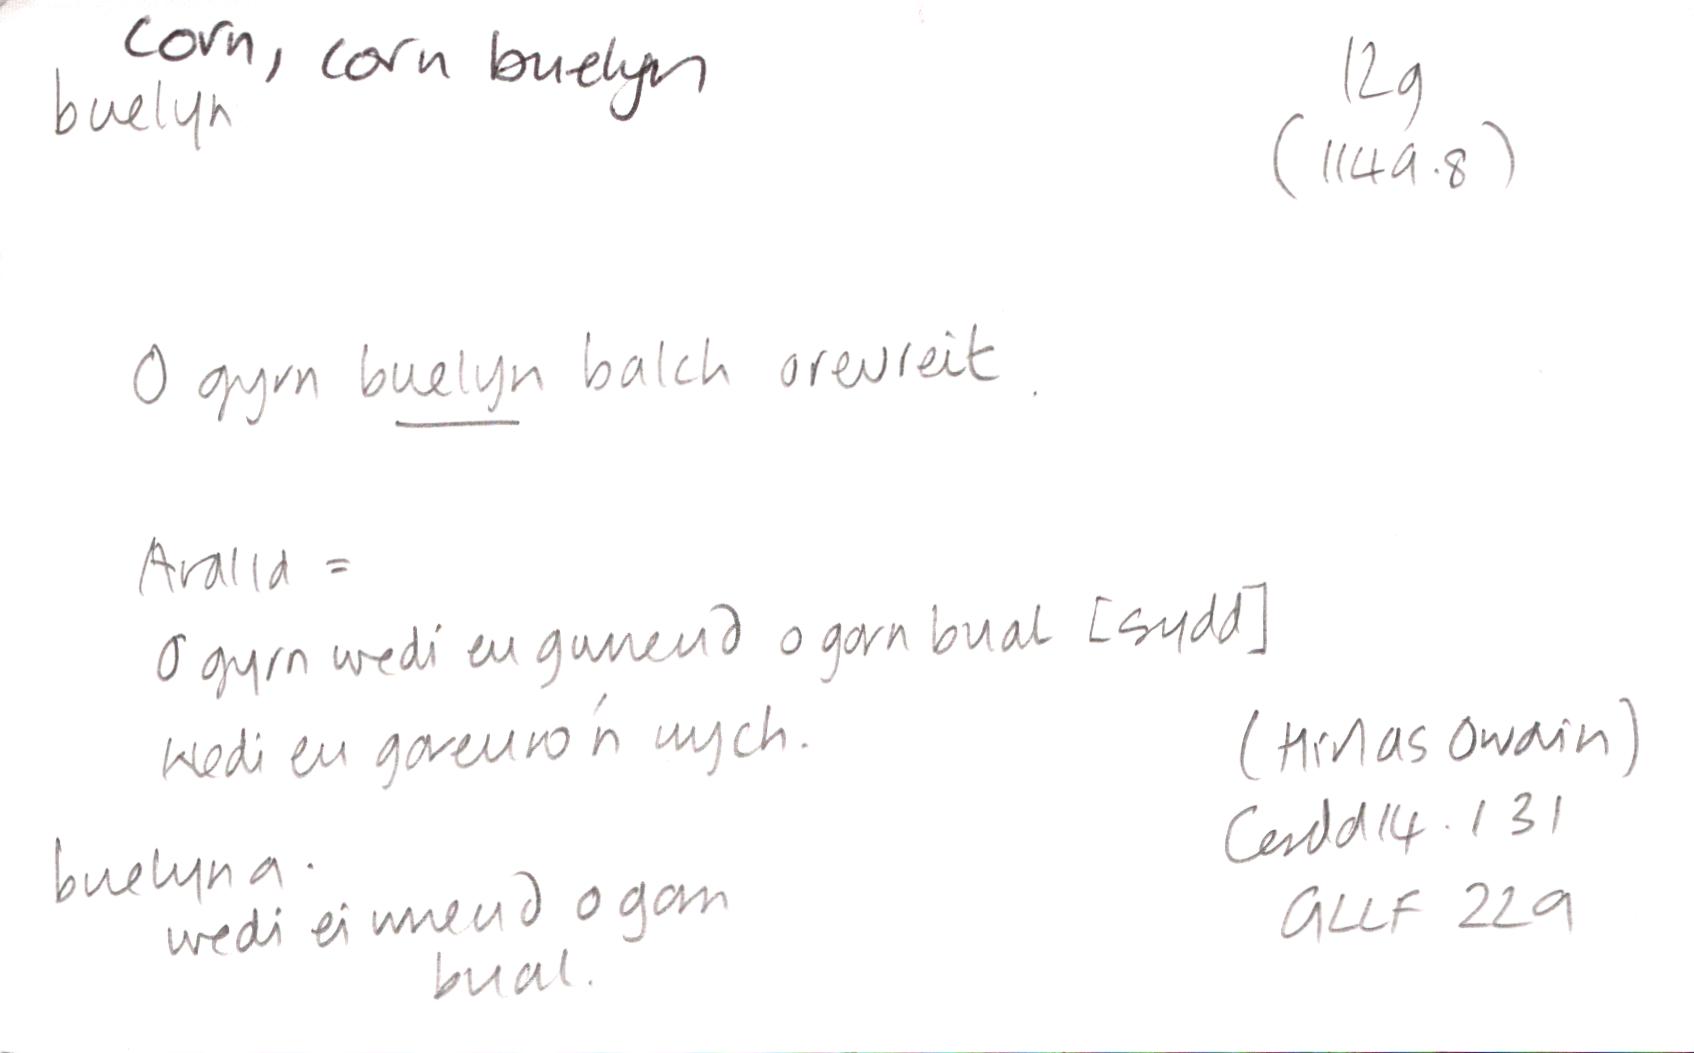 corn, corn buelyn
buelyn
12g
(1149.8)
O gyrn buelyn balch oreureit.
Arall a =
O gyrn wedi eu gwneud o gorn bual [sydd]
wedi eu goreuro'n wych.
(Hirlas Owain)
Cerdd 14. 131
GLLF 229
buelyn a.
wedi ei wneud o gorn
bual.